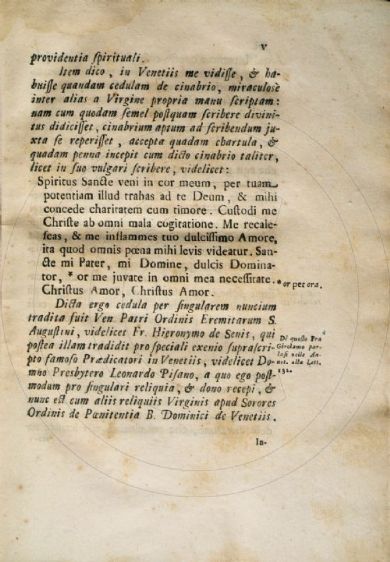 V
providentia spirituali.
Item dico, in Venetiis me vidisse, & ha-
buisse quandam cedulam de cinabrio, miraculosè
inter alias a Virgine propria manu scriptam:
nam cum quodam semel postquam scribere divini-
tus didicisset, cinabrium aptum ad scribendum ju-
xta se reperisset, accepta quadam chartula, &
quadam penna incepit cum dicto cinabrio taliter,
licet in suo vulgari scribere, videlicet:
Spiritus Sancte veni in cor meum, per tuam
potentiam illud trahas ad te Deum, & mihi
concede charitatem cum timore. Custodi me
Christe ab omni mala cogitatione. Me recale-
feas, & me inflammes tuo dulcissimo Amore,
ita quod omnis pœna mihi levis videatur. San-
cte mi Pater, mi Domine, dulcis Domina-
tor, * or me juvate in omni mea necessitate.
Christus Amor, Christus Amor.
* or per ora.
Dicta ergo cedula per singularem nuncium
tradita fuit Ven. Patri Ordinis Eremitarum S.
Augustini, videlicet Fr. Hieronymo de Senis, qui
postea illam tradidit pro speciali exenio suprascri-
pto famoso Prædicatori in Venetiis, videlicet Do-
mno Presbytero Leonardo Pisano, a quo ego post-
modum pro singulari reliquia, & dono recepi, &
nunc est cum aliis reliquiis Virginis apud Sorores
Ordinis de Pœnitentia B. Dominici de Venetiis.
Di questo Fra
Girolamo par-
lasi nelle An-
not. alla Lett.
132.
In-